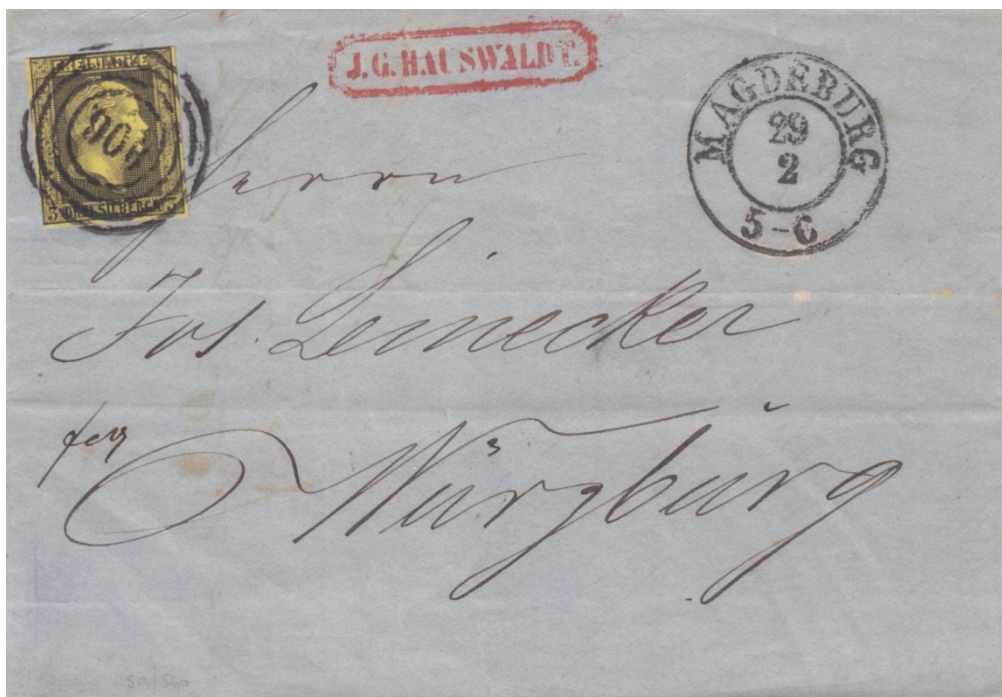 FREIMARKE
3 DREI SILBERGR. 3
906
J.G. HAUSWALDT.
MAGDEBURG
29
2
5-6
Herrn
Jos. Leinecker
Würzburg